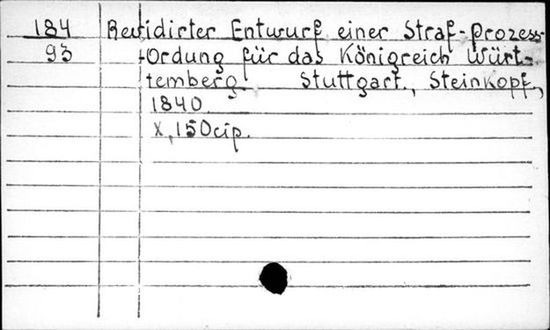 184 Revidirter Entwurf einer Straf-Prozess
93 -Ordung für das Königreich Würt-
temberg. Stuttgart., Steinkopf,
1840.
X, 150 cip.